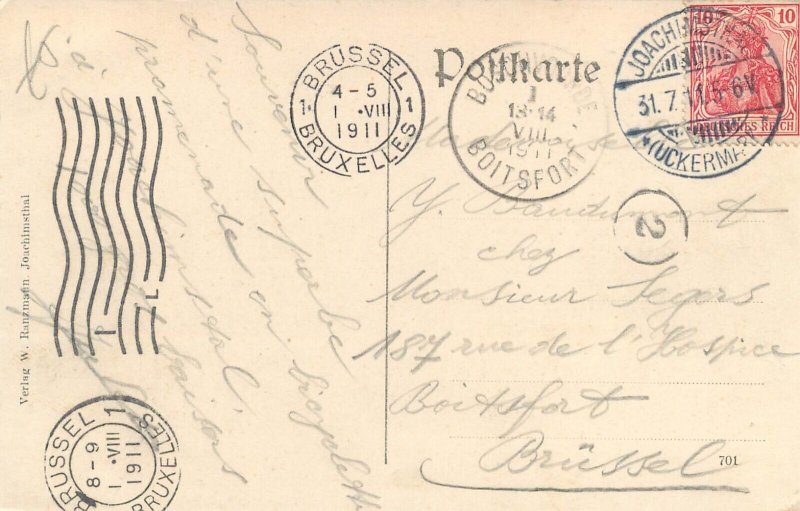 Postkarte
10
DEUTSCHES REICH
JOACHIMSTHAL
31.7.11.5-6V.
*(UCKERMARK)
BRÜSSEL
4-5
1 1
1 ·VIII
1911
BRUXELLES
1
13-14
VIII
1911
BOITSFORT
2
Mademoiselle
Y.
chez
Monsieur Segers
187 rue de l'Hospice
Boitsfort
Brüssel
Souvenir
d'une superbe
promenade en bicyclette
à Joachimstal.
Verlag W. Ranzmann Joachimsthal
BRÜSSEL 1
8-9
1 ·VIII
1911
BRUXELLES
701